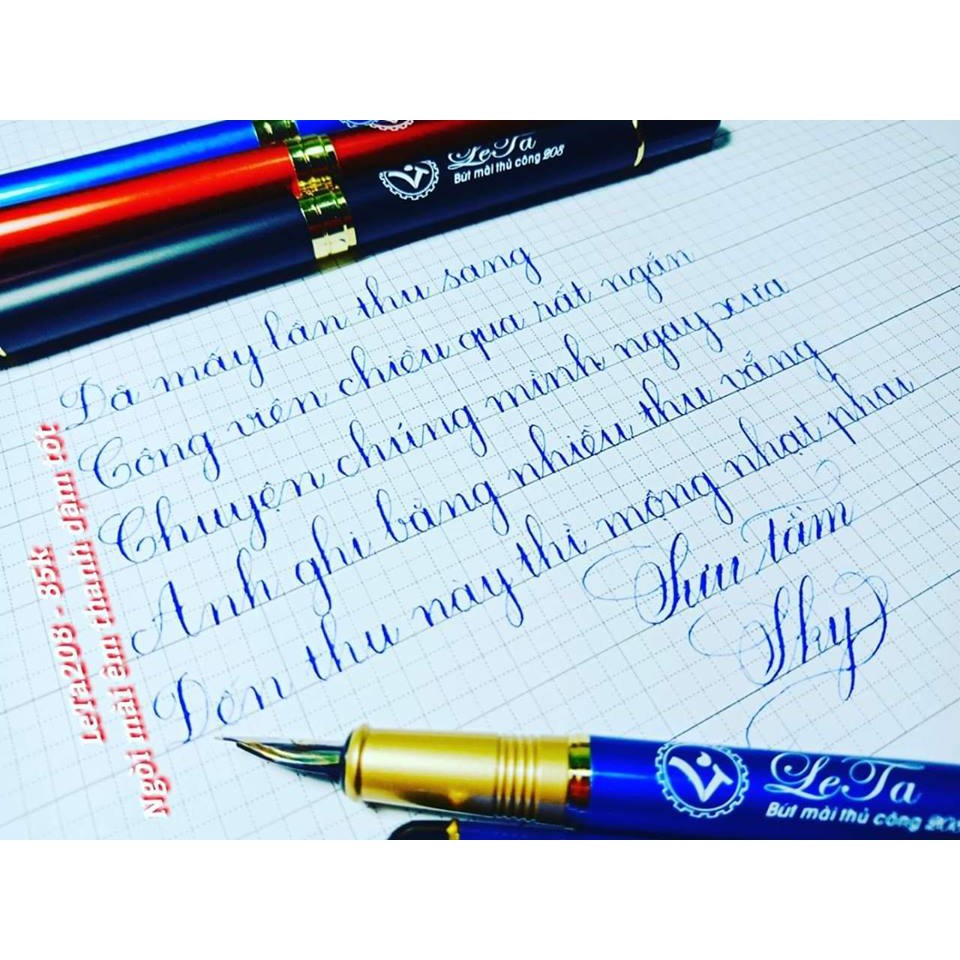 LeTa
Bút mài thủ công 208
Đã mấy lần thu sang
Công viên chiều qua rất ngắn
Chuyện chúng mình ngày xưa
Anh ghi bằng nhiều thu vắng
Đến thu này thì mộng nhạt phai
Sưu tầm
Sky
LeTa208 - 85k
Ngòi mài êm thanh đậm tốt
LeTa
Bút mài thủ công 208